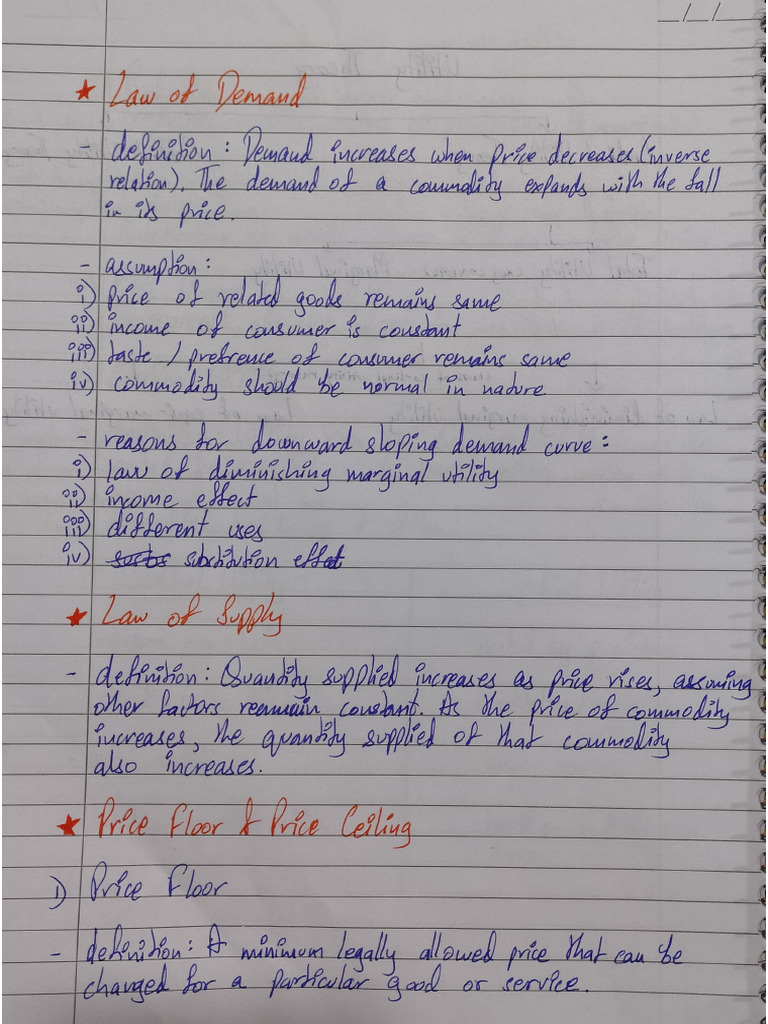 __/__/__
★ Law of Demand
- definition : Demand increases when price decreases (inverse
relation). The demand of a commodity expands with the fall
in its price.
- assumption :
i) price of related goods remains same
ii) income of consumer is constant
iii) taste / prefrence of consumer remains same
iv) commodity should be normal in nature
- reasons for downward sloping demand curve :
i) law of diminishing marginal utility
ii) income effect
iii) different uses
iv) substitution effect
★ Law of Supply
- definition : Quantity supplied increases as price rises, assuming
other factors reamain constant. As the price of commodity
increases, the quantity supplied of that commodity
also increases.
★ Price Floor & Price Ceiling
1) Price Floor
- definition : A minimum legally allowed price that can be
changed for a particular good or service.